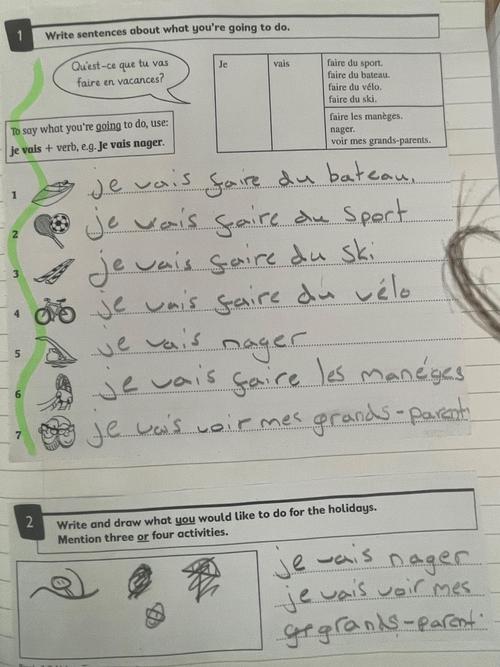 1 Write sentences about what you're going to do.
Qu'est-ce que tu vas
faire en vacances?
Je vais faire du sport.
faire du bateau.
faire du vélo.
faire du ski.
faire les manèges.
nager.
voir mes grands-parents.
To say what you're going to do, use:
je vais + verb, e.g. Je vais nager.
1 je vais faire du bateau.
2 je vais faire du sport
3 je vais faire du ski
4 je vais faire du vélo
5 je vais nager
6 je vais faire les manéges
7 je vais voir mes grands-parent
2 Write and draw what you would like to do for the holidays.
Mention three or four activities.
je vais nager
je vais voir mes
grands-parent.